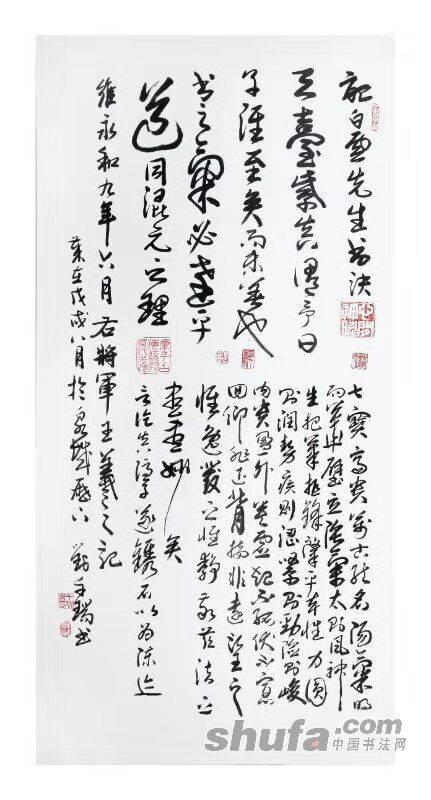 記白雲先生书决
天臺紫真謂予曰
子雖至矣而未善也
书之氣必達乎
道同混元之理
七寳齊貴萬古能名陽氣明
而華壁立陰氣太則風神
生把筆抵鋒肇乎本性力圓
則潤勢疾則澀緊則勁險則峻
内貴盈外貴虚起不孤伏不寡
回仰非近背接非遠望之
惟逸發之惟靜敬兹法也
書盡妙矣
言讫真隱子遂鐫石以為陳迹
維永和九年六月右將軍王羲之記
歲在戊戌八月於泉城歷下
shufa.com
中国书法网